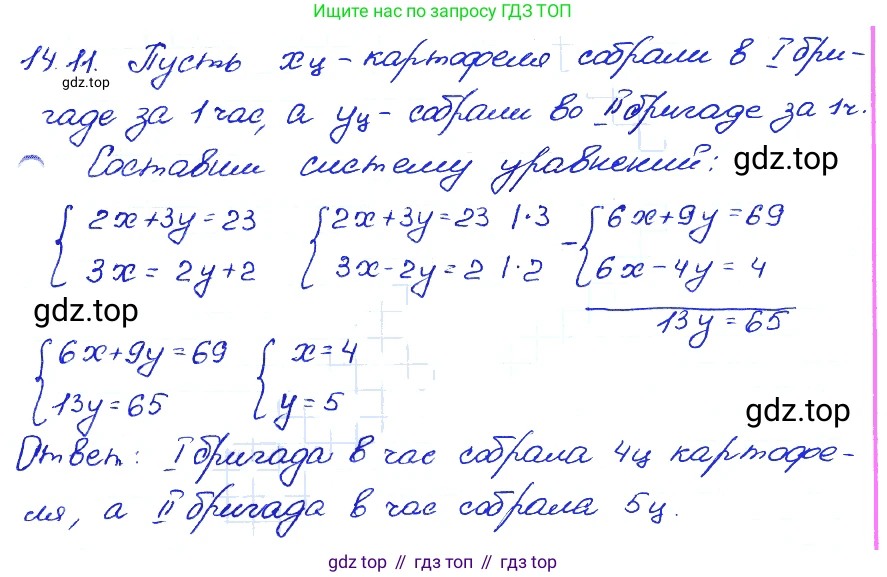 Ищите нас по запросу ГДЗ ТОП
14.11. Пусть x ц - картофеля собрали в I бри-
gdz.top
гаде за 1 час, а y ц - собрали во II бригаде за 1ч.
Составим систему уравнений: gdz.top
{ 2x+3y=23 { 2x+3y=23 |·3 - { 6x+9y=69
3x = 2y+2 3x-2y=2 |·2 6x-4y= 4
gdz.top 13y=65
{ 6x+9y=69 { x=4
13y=65 y=5
gdz.top
Ответ: I бригада в час собрала 4ц картофе-
ля, а II бригада в час собрала 5ц.
gdz top // гдз топ // gdz top